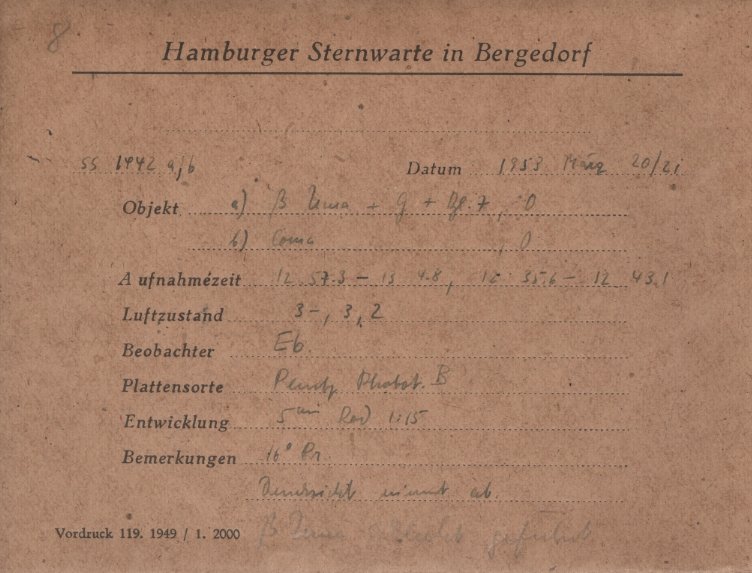 8
Hamburger Sternwarte in Bergedorf
SS 1942 a/b Datum 1953 März 20/21
Objekt a) β Uma + G + , 0
b) Coma , 0
Aufnahmezeit 12 57.3 – 13 4.8, 12 35.6 – 12 43.1
Luftzustand 3–, 3, 2
Beobachter Eb.
Plattensorte B
Entwicklung 5 min Rod 1:15
Bemerkungen 16° Pr.
nimmt ab.
Vordruck 119. 1949 / 1. 2000 β Uma geführt